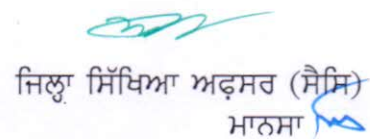 ਜਿਲ੍ਹਾ ਸਿੱਖਿਆ ਅਫ਼ਸਰ (ਸੈਸਿ)
ਮਾਨਸਾ